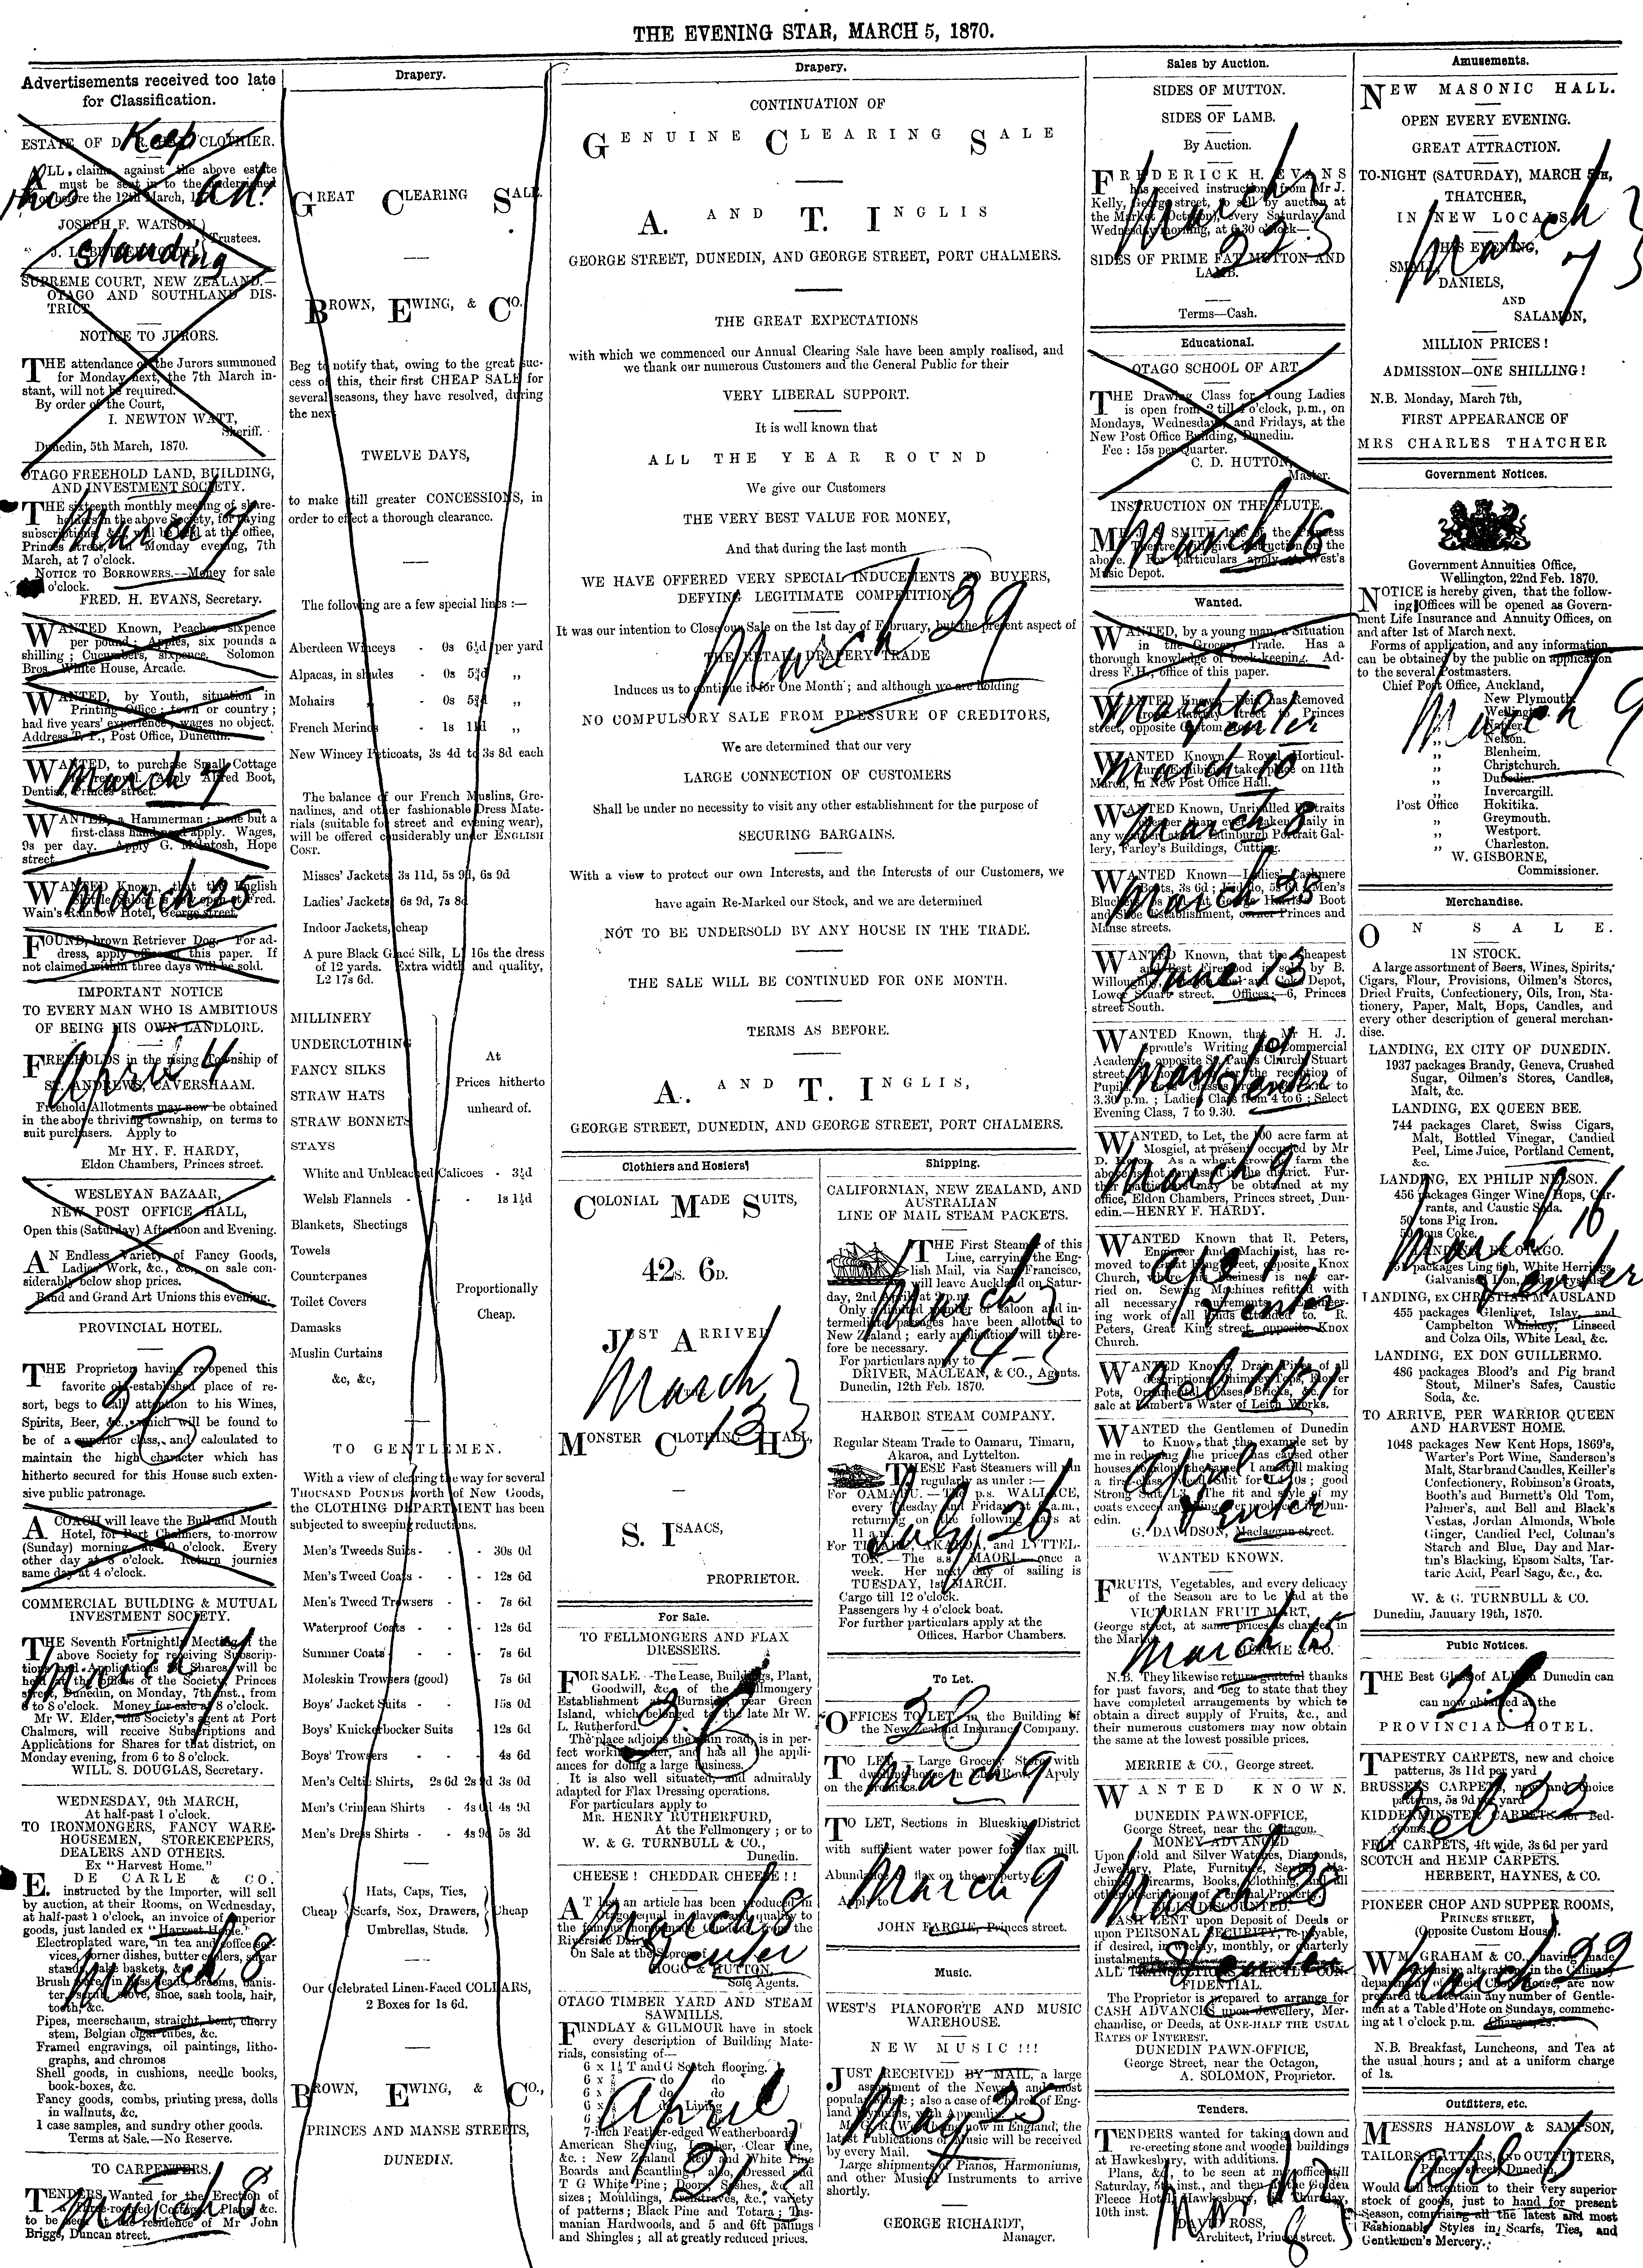 THE EVENING STAR, MARCH 5, 1870.
Advertisements received too late
for Classification.
Keep
this ad.
standing
ESTATE OF D. CLOTHIER.
ALL claims against the above estate
must be sent in to the undersigned
on or before the 12th March, 1870.
JOSEPH F. WATSON,
Trustees.
SUPREME COURT, NEW ZEALAND.—
OTAGO AND SOUTHLAND DIS-
TRICT.
NOTICE TO JURORS.
THE attendance of the Jurors summoned
for Monday next, the 7th March in-
stant, will not be required.
By order of the Court,
I. NEWTON WATT,
Sheriff.
Dunedin, 5th March, 1870.
OTAGO FREEHOLD LAND, BUILDING,
AND INVESTMENT SOCIETY.
THE sixteenth monthly meeting of share-
holders in the above Society, for paying
subscriptions, &c., will be held at the office,
Princes street, on Monday evening, 7th
March, at 7 o'clock.
NOTICE TO BORROWERS.—Money for sale
o'clock.
FRED. H. EVANS, Secretary.
March 7
WANTED Known, Peaches sixpence
per pound; Apples, six pounds a
shilling; Cucumbers, sixpence. Solomon
Bros., White House, Arcade.
WANTED, by Youth, situation in
Printing Office; town or country;
had five years' experience; wages no object.
Address T. P., Post Office, Dunedin.
WANTED, to purchase Small Cottage
for removal. Apply Alfred Boot,
Dentist, Princes street.
March 7
WANTED, a Hammerman; none but a
first-class hand need apply. Wages,
9s per day. Apply G. McIntosh, Hope
street.
WANTED Known, that the English
Skittle Saloon is now open at Fred.
Wain's Rainbow Hotel, George street.
March 25
FOUND, brown Retriever Dog. For ad-
dress, apply office of this paper. If
not claimed within three days will be sold.
IMPORTANT NOTICE
TO EVERY MAN WHO IS AMBITIOUS
OF BEING HIS OWN LANDLORD.
FREEHOLDS in the rising Township of
ST. ANDREWS, CAVERSHAAM.
Freehold Allotments may now be obtained
in the above thriving township, on terms to
suit purchasers. Apply to
Mr HY. F. HARDY,
Eldon Chambers, Princes street.
April 4
WESLEYAN BAZAAR,
NEW POST OFFICE HALL,
Open this (Saturday) Afternoon and Evening.
AN Endless Variety of Fancy Goods,
Ladies' Work, &c., &c., on sale con-
siderably below shop prices.
Band and Grand Art Unions this evening.
PROVINCIAL HOTEL.
THE Proprietor having re-opened this
favorite old-established place of re-
sort, begs to call attention to his Wines,
Spirits, Beer, &c., which will be found to
be of a superior class, and calculated to
maintain the high character which has
hitherto secured for this House such exten-
sive public patronage.
A COACH will leave the Bull and Mouth
Hotel, for Port Chalmers, to-morrow
(Sunday) morning, at 10 o'clock. Every
other day at 8 o'clock. Return journies
same day at 4 o'clock.
COMMERCIAL BUILDING & MUTUAL
INVESTMENT SOCIETY.
THE Seventh Fortnightly Meeting of the
above Society for receiving Subscrip-
tions and Applications for Shares will be
held at the offices of the Society, Princes
street, Dunedin, on Monday, 7th inst., from
6 to 8 o'clock. Money for sale at 8 o'clock.
Mr W. Elder, the Society's agent at Port
Chalmers, will receive Subscriptions and
Applications for Shares for that district, on
Monday evening, from 6 to 8 o'clock.
WILL. S. DOUGLAS, Secretary.
March 7
WEDNESDAY, 9th MARCH,
At half-past 1 o'clock.
TO IRONMONGERS, FANCY WARE-
HOUSEMEN, STOREKEEPERS,
DEALERS AND OTHERS.
Ex "Harvest Home."
DE CARLE & CO.
E. instructed by the Importer, will sell
by auction, at their Rooms, on Wednesday,
at half-past 1 o'clock, an invoice of superior
goods, just landed ex "Harvest Home."
Electroplated ware, in tea and coffee ser-
vices, corner dishes, butter coolers, sugar
stands, cake baskets, &c.
Brush ware, in hair brooms, banis-
ter, scrub, stove, shoe, sash tools, hair,
tooth, &c.
Pipes, meerschaum, straight, bent, cherry
stem, Belgian cigar tubes, &c.
Framed engravings, oil paintings, litho-
graphs, and chromos
Shell goods, in cushions, needle books,
book-boxes, &c.
Fancy goods, combs, printing press, dolls
in wallnuts, &c.
1 case samples, and sundry other goods.
Terms at Sale.—No Reserve.
March 8
TO CARPENTERS.
TENDERS Wanted for the Erection of
a Three-roomed Cottage. Plans, &c.
to be seen at the residence of Mr John
Briggs, Duncan street.
March 8
Drapery.
GREAT CLEARING SALE.
BROWN, EWING, & CO.
Beg to notify that, owing to the great suc-
cess of this, their first CHEAP SALE for
several seasons, they have resolved, during
the next
TWELVE DAYS,
to make still greater CONCESSIONS, in
order to effect a thorough clearance.
The following are a few special lines:—
Aberdeen Winceys - 0s 6½d per yard
Alpacas, in shades - 0s 5¾d „
Mohairs „ - 0s 5¾d „
French Merinos - 1s 11d „
New Wincey Peticoats, 3s 4d to 3s 8d each
The balance of our French Muslins, Gre-
nadines, and other fashionable Dress Mate-
rials (suitable for street and evening wear),
will be offered considerably under ENGLISH
COST.
Misses' Jackets, 3s 11d, 5s 9d, 6s 9d
Ladies' Jackets, 6s 9d, 7s 8d
Indoor Jackets, cheap
A pure Black Glacé Silk, L1 16s the dress
of 12 yards. Extra width and quality,
L2 17s 6d.
MILLINERY
UNDERCLOTHING
FANCY SILKS
STRAW HATS
STRAW BONNETS
STAYS
At
Prices hitherto
unheard of.
White and Unbleached Calicoes - 3½d
Welsh Flannels - - - 1s 1½d
Blankets, Sheetings
Towels
Counterpanes
Toilet Covers
Damasks
Muslin Curtains
&c, &c,
Proportionally
Cheap.
TO GENTLEMEN.
With a view of clearing the way for several
THOUSAND POUNDS worth of New Goods,
the CLOTHING DEPARTMENT has been
subjected to sweeping reductions.
Men's Tweeds Suits - - - 30s 0d
Men's Tweed Coats - - - 12s 6d
Men's Tweed Trowsers - - 7s 6d
Waterproof Coats - - - 12s 6d
Summer Coats - - - 7s 6d
Moleskin Trowsers (good) - 7s 6d
Boys' Jacket Suits - - - 15s 0d
Boys' Knickerbocker Suits - 12s 6d
Boys' Trowsers - - - 4s 6d
Men's Celtic Shirts, 2s 6d 2s 9d 3s 0d
Men's Crimean Shirts - 4s 4s 9d
Men's Dress Shirts - - 4s 9d 5s 3d
Cheap
Hats, Caps, Ties,
Scarfs, Sox, Drawers,
Umbrellas, Studs.
Cheap
Our Celebrated Linen-Faced COLLARS,
2 Boxes for 1s 6d.
BROWN, EWING, & CO.,
PRINCES AND MANSE STREETS,
DUNEDIN.
Drapery.
CONTINUATION OF
GENUINE CLEARING SALE
A. AND T. INGLIS
GEORGE STREET, DUNEDIN, AND GEORGE STREET, PORT CHALMERS.
THE GREAT EXPECTATIONS
with which we commenced our Annual Clearing Sale have been amply realised, and
we thank our numerous Customers and the General Public for their
VERY LIBERAL SUPPORT.
It is well known that
ALL THE YEAR ROUND
We give our Customers
THE VERY BEST VALUE FOR MONEY,
And that during the last month
WE HAVE OFFERED VERY SPECIAL INDUCEMENTS TO BUYERS,
DEFYING LEGITIMATE COMPETITION
It was our intention to Close our Sale on the 1st day of February, but the present aspect of
THE RETAIL DRAPERY TRADE
Induces us to continue it for One Month; and although we are holding
NO COMPULSORY SALE FROM PRESSURE OF CREDITORS,
We are determined that our very
LARGE CONNECTION OF CUSTOMERS
Shall be under no necessity to visit any other establishment for the purpose of
SECURING BARGAINS.
With a view to protect our own Interests, and the Interests of our Customers, we
have again Re-Marked our Stock, and we are determined
NOT TO BE UNDERSOLD BY ANY HOUSE IN THE TRADE.
THE SALE WILL BE CONTINUED FOR ONE MONTH.
TERMS AS BEFORE.
A. AND T. INGLIS,
GEORGE STREET, DUNEDIN, AND GEORGE STREET, PORT CHALMERS.
March 29
Clothiers and Hosiers
COLONIAL MADE SUITS,
42S. 6D.
JUST ARRIVED
MONSTER CLOTHING HALL,
S. ISAACS,
PROPRIETOR.
March 13
For Sale.
TO FELLMONGERS AND FLAX
DRESSERS.
FOR SALE.—The Lease, Buildings, Plant,
Goodwill, &c., of the Fellmongery
Establishment at Burnside, near Green
Island, which belonged to the late Mr W.
L. Rutherford.
The place adjoins the main road, is in per-
fect working order, and has all the appli-
ances for doing a large business.
It is also well situated, and admirably
adapted for Flax Dressing operations.
For particulars apply to
MR. HENRY RUTHERFURD,
At the Fellmongery; or to
W. & G. TURNBULL & CO.,
Dunedin.
CHEESE! CHEDDAR CHEESE!!!
AT last an article has been produced in
Otago equal in flavor and quality to
the famous home-made Cheddar, from the
Riverside Dairy.
On Sale at the Stores of
HOGG & HUTTON,
Sole Agents.
OTAGO TIMBER YARD AND STEAM
SAWMILLS.
FINDLAY & GILMOUR have in stock
every description of Building Mate-
rials, consisting of—
6 x 1½ T and G Scotch flooring.
do do
do do
Lining
7-inch Feather-edged Weatherboards
American Shelving, Lumber, Clear Pine,
&c.: New Zealand Red and White Pine
Boards and Scantling; also, Dressed and
T G White Pine; Doors, Sashes, &c., all
sizes; Mouldings, Architraves, &c., variety
of patterns; Black Pine and Totara; Tas-
manian Hardwoods, and 5 and 6ft palings
and Shingles; all at greatly reduced prices.
April
Shipping.
CALIFORNIAN, NEW ZEALAND, AND
AUSTRALIAN
LINE OF MAIL STEAM PACKETS.
THE First Steamer of this
Line, carrying the Eng-
lish Mail, via San Francisco,
will leave Auckland on Satur-
day, 2nd April at 2 p.m.
Only a limited number of saloon and in-
termediate passages have been allotted to
New Zealand; early application will there-
fore be necessary.
For particulars apply to
DRIVER, MACLEAN, & CO., Agents.
Dunedin, 12th Feb. 1870.
March 14
HARBOR STEAM COMPANY.
Regular Steam Trade to Oamaru, Timaru,
Akaroa, and Lyttelton.
THESE Fast Steamers will run
regularly as under:—
For OAMARU.—The p.s. WALLACE,
every Tuesday and Friday, at a.m.,
returning on the following days at
11 a.m.
For TIMARU, AKAROA, and LYTTEL-
TON.—The s.s. MAORI once a
week. Her next day of sailing is
TUESDAY, 1st MARCH.
Cargo till 12 o'clock.
Passengers by 4 o'clock boat.
For further particulars apply at the
Offices, Harbor Chambers.
July 26
To Let.
OFFICES TO LET, in the Building of
the New Zealand Insurance Company.
TO LET.—Large Grocery Store, with
dwelling-house, in Row. Apply
on the premises.
March 9
TO LET, Sections in Blueskin District
with sufficient water power for flax mill.
Abundance of flax on the property.
Apply to
JOHN FARGIE, Princes street.
March 9
Music.
WEST'S PIANOFORTE AND MUSIC
WAREHOUSE.
NEW MUSIC!!!
JUST RECEIVED BY MAIL, a large
assortment of the Newest and most
popular Music; also a case of Church of Eng-
land Hymnals, with Appendix.
Mr G. R. West being now in England, the
latest Publications of Music will be received
by every Mail.
Large shipments of Pianos, Harmoniums,
and other Musical Instruments to arrive
shortly.
GEORGE RICHARDT,
Manager.
May 25
Sales by Auction.
SIDES OF MUTTON.
SIDES OF LAMB.
By Auction.
FREDERICK H. EVANS
has received instructions from Mr J.
Kelly, George street, to sell by auction, at
the Market (Octagon), every Saturday and
Wednesday morning, at 6.30 o'clock—
SIDES OF PRIME FAT MUTTON AND
LAMB.
Terms—Cash.
March 22
Educational.
OTAGO SCHOOL OF ART.
THE Drawing Class for Young Ladies
is open from 2 till 4 o'clock, p.m., on
Mondays, Wednesdays, and Fridays, at the
New Post Office Building, Dunedin.
Fee: 15s per Quarter.
C. D. HUTTON,
Master.
INSTRUCTION ON THE FLUTE.
MR J. S. SMITH, late of the Princess
Theatre, will give instruction on the
above. For particulars apply at West's
Music Depot.
March 16
Wanted.
WANTED, by a young man, a Situation
in the Grocery Trade. Has a
thorough knowledge of book-keeping. Ad-
dress F.H., office of this paper.
WANTED Known—Reid has Removed
from Rattray street to Princes
street, opposite Custom House.
WANTED Known.—Royal Horticul-
tural Exhibition takes place on 11th
March, in New Post Office Hall.
March 10
WANTED Known, Unrivalled Portraits
cheaper than ever taken daily in
any weather, at the Edinburgh Portrait Gal-
lery, Farley's Buildings, Cutting.
March 8
WANTED Known—Ladies' Cashmere
Boots, 3s 6d; Kid do, 5s 6d; Men's
Bluchers, at George Harris's Boot
and Shoe Establishment, corner Princes and
Manse streets.
WANTED Known, that the Cheapest
and Best Firewood is sold by B.
Willoughby, Coal and Coke Depot,
Lower Stuart street. Offices:—6, Princes
street South.
June 13
WANTED Known, that Mr H. J.
Sproule's Writing and Commercial
Academy, opposite St. Paul's Church, Stuart
street, is now open for the reception of
Pupils. Boys' Classes from a.m. to
3.30 p.m.; Ladies' Class from 4 to 6; Select
Evening Class, 7 to 9.30.
WANTED, to Let, the 100 acre farm at
Mosgiel, at present occupied by Mr
D. As a wheat growing farm the
above is not surpassed in the district. Fur-
ther particulars may be obtained at my
office, Eldon Chambers, Princes street, Dun-
edin.—HENRY F. HARDY.
March 9
WANTED Known that R. Peters,
Engineer and Machinist, has re-
moved to Great King street, opposite Knox
Church, where his business is now car-
ried on. Sewing Machines refitted with
all necessary requirements. Engineer-
ing work of all kinds attended to. R.
Peters, Great King street, opposite Knox
Church.
WANTED Known, Drain Pipes of all
descriptions, Chimney Tops, Flower
Pots, Ornamental Vases, Bricks, &c., for
sale at Lambert's Water of Leith Works.
WANTED the Gentlemen of Dunedin
to Know, that the example set by
me in reducing the prices has caused other
houses to adopt the same. I am still making
a first-class Tweed Suit for L4 10s; good
Strong Suit, L3. The fit and style of my
coats exceed anything ever produced in Dun-
edin.
G. DAVIDSON, Maclaggan street.
WANTED KNOWN.
FRUITS, Vegetables, and every delicacy
of the Season are to be had at the
VICTORIAN FRUIT MART,
George street, at same prices as charged in
the Market.
MERRIE & CO.
N.B. They likewise return grateful thanks
for past favors, and beg to state that they
have completed arrangements by which to
obtain a direct supply of Fruits, &c., and
their numerous customers may now obtain
the same at the lowest possible prices.
MERRIE & CO., George street.
WANTED KNOWN.
DUNEDIN PAWN-OFFICE,
George street, near the Octagon.
MONEY ADVANCED
Upon Gold and Silver Watches, Diamonds,
Jewellery, Plate, Furniture, Sewing Ma-
chines, Firearms, Books, Clothing, and all
other descriptions of Personal Property.
BILLS DISCOUNTED.
CASH LENT upon Deposit of Deeds or
upon PERSONAL SECURITY, re-payable,
if desired, in weekly, monthly, or quarterly
instalments.
ALL TRANSACTIONS STRICTLY CON-
FIDENTIAL.
The Proprietor is prepared to arrange for
CASH ADVANCES upon Jewellery, Mer-
chandise, or Deeds, at ONE-HALF THE USUAL
RATES OF INTEREST.
DUNEDIN PAWN-OFFICE,
George Street, near the Octagon,
A. SOLOMON, Proprietor.
Tenders.
TENDERS wanted for taking down and
re-erecting stone and wooden buildings
at Hawkesbury, with additions.
Plans, &c., to be seen at my office till
Saturday, 5th inst., and then at the Golden
Fleece Hotel, Hawkesbury, till Thursday,
10th inst.
DAVID ROSS,
Architect, Princes street.
Amusements.
NEW MASONIC HALL.
OPEN EVERY EVENING.
GREAT ATTRACTION.
TO-NIGHT (SATURDAY), MARCH 5TH,
THATCHER,
IN NEW LOCALS.
THIS EVENING,
SMALL,
DANIELS,
AND
SALAMON,
MILLION PRICES!
ADMISSION—ONE SHILLING!
N.B. Monday, March 7th,
FIRST APPEARANCE OF
MRS CHARLES THATCHER
March 7
Government Notices.
Government Annuities Office,
Wellington, 22nd Feb. 1870.
NOTICE is hereby given, that the follow-
ing Offices will be opened as Govern-
ment Life Insurance and Annuity Offices, on
and after 1st of March next.
Forms of application, and any information
can be obtained by the public on application
to the several Postmasters.
Chief Post Office, Auckland,
New Plymouth.
Wellington.
Napier.
Nelson.
„ Blenheim.
„ Christchurch.
„ Dunedin.
„ Invercargill.
Post Office Hokitika.
„ Greymouth.
„ Westport.
„ Charleston.
W. GISBORNE,
Commissioner.
March 9
Merchandise.
ON SALE.
IN STOCK.
A large assortment of Beers, Wines, Spirits,
Cigars, Flour, Provisions, Oilmen's Stores,
Dried Fruits, Confectionery, Oils, Iron, Sta-
tionery, Paper, Malt, Hops, Candles, and
every other description of general merchan-
dise.
LANDING, EX CITY OF DUNEDIN.
1937 packages Brandy, Geneva, Crushed
Sugar, Oilmen's Stores, Candles,
Malt, &c.
LANDING, EX QUEEN BEE.
744 packages Claret, Swiss Cigars,
Malt, Bottled Vinegar, Candied
Peel, Lime Juice, Portland Cement,
&c.
LANDING, EX PHILIP NELSON.
456 packages Ginger Wine, Hops, Cur-
rants, and Caustic Soda.
50 tons Pig Iron.
50 tons Coke.
LANDING, EX OTAGO.
packages Ling fish, White Herrings,
Galvanised Iron, Soda Crystals.
LANDING, EX CHRISTIAN M'AUSLAND
455 packages Glenlivet, Islay, and
Campbelton Whiskey, Linseed
and Colza Oils, White Lead, &c.
LANDING, EX DON GUILLERMO.
486 packages Blood's and Pig brand
Stout, Milner's Safes, Caustic
Soda, &c.
TO ARRIVE, PER WARRIOR QUEEN
AND HARVEST HOME.
1048 packages New Kent Hops, 1869's,
Warter's Port Wine, Sanderson's
Malt, Starbrand Candles, Keiller's
Confectionery, Robinson's Groats,
Booth's and Burnett's Old Tom,
Palmer's, and Bell and Black's
Vestas, Jordan Almonds, Whole
Ginger, Candied Peel, Colman's
Starch and Blue, Day and Mar-
tin's Blacking, Epsom Salts, Tar-
taric Acid, Pearl Sago, &c., &c.
W. & G. TURNBULL & CO.
Dunedin, January 19th, 1870.
March 16
Pubic Notices.
THE Best Glass of ALE in Dunedin can
now obtained at the
PROVINCIAL HOTEL.
TAPESTRY CARPETS, new and choice
patterns, 3s 11d per yard
BRUSSELS CARPETS, new and choice
patterns, 5s 9d per yard
KIDDERMINSTER CARPETS for Bed-
rooms.
FELT CARPETS, 4ft wide, 3s 6d per yard
SCOTCH and HEMP CARPETS.
HERBERT, HAYNES, & CO.
Feb 22
PIONEER CHOP AND SUPPER ROOMS,
PRINCES STREET,
(Opposite Custom House).
WM. GRAHAM & CO., having made
extensive alterations in the Culinary
department of their Chop House, are now
prepared to entertain any number of Gentle-
men at a Table d'Hote on Sundays, commenc-
ing at 1 o'clock p.m. Charges, 2s.
N.B. Breakfast, Luncheons, and Tea at
the usual hours; and at a uniform charge
of 1s.
March 22
Outfitters, etc.
MESSRS HANSLOW & SAMPSON,
TAILORS, HATTERS, AND OUTFITTERS,
Princes street, Dunedin,
Would call attention to their very superior
stock of goods, just to hand for present
Season, comprising all the latest and most
Fashionable Styles in Scarfs, Ties, and
Gentlemen's Mercery.